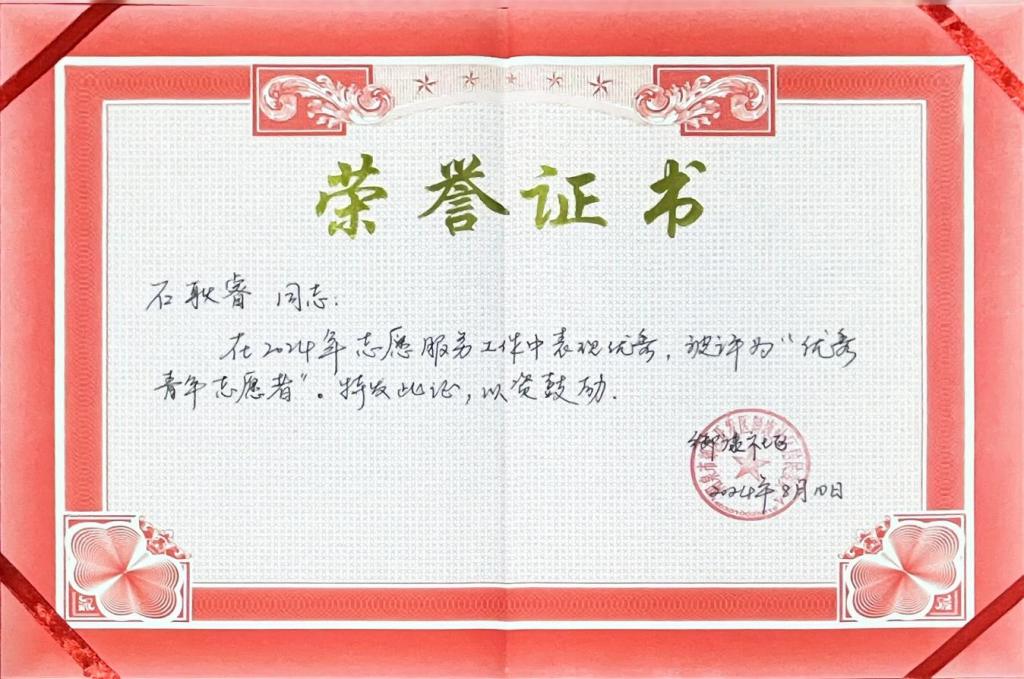 荣誉证书
石耿睿 同志:
在2024年志愿服务工作中表现优秀,被评为“优秀
青年志愿者”。特发此证,以资鼓励.
御康社区
2024年8月10日